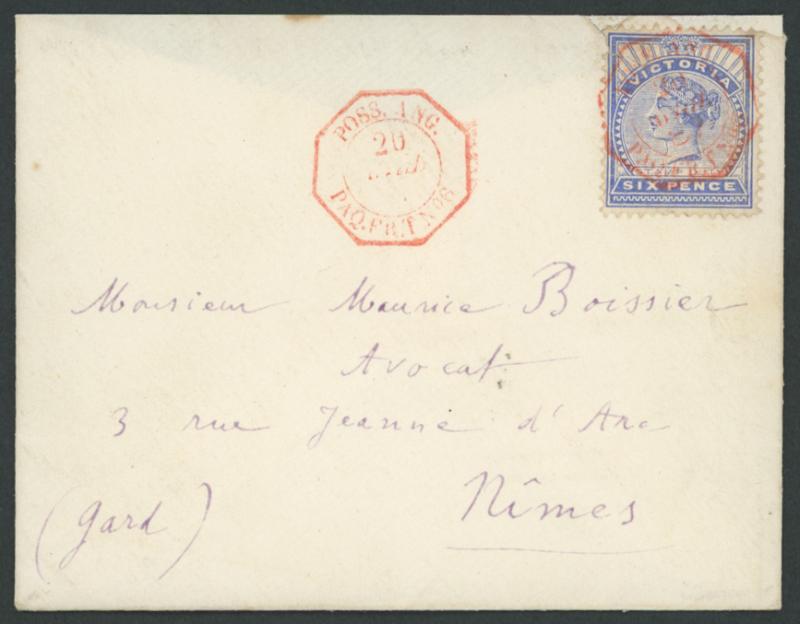 POSS. ANG.
20
PAQ. FR. T Nº6
VICTORIA
SIX PENCE
Monsieur Maurice Boissier
Avocat
3 rue Jeanne d'Arc
Nîmes
(Gard)